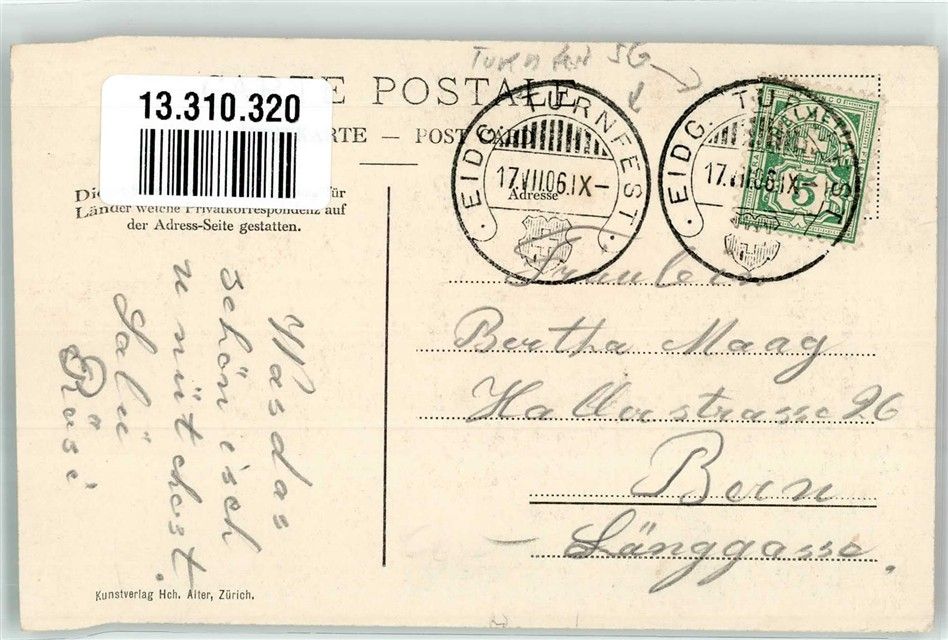 Turnfest SG
CARTE POSTALE
13.310.320
CARTE — POST CARD
Die für
Länder welche Privatkorrespondenz auf
der Adress-Seite gestatten.
EIDG. TURNFEST.
17.VII.06.IX-
Adresse
EIDG. TURNFEST.
17.VII.06.IX-
5
Fräulein
Bertha Maag
Hallerstrasse 26
Bern
Länggasse.
Was das
schön isch
u nüt chost.
Salü
Rösi
Kunstverlag Hch. Alter, Zürich.